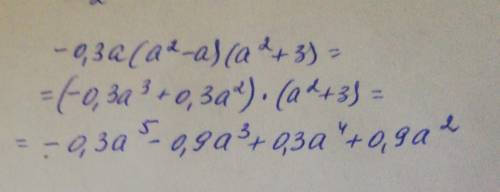 -0,3a(a²-a)(a²+3)=
=(-0,3a³+0,3a²)·(a²+3)=
=-0,3a⁵-0,9a³+0,3a⁴+0,9a²